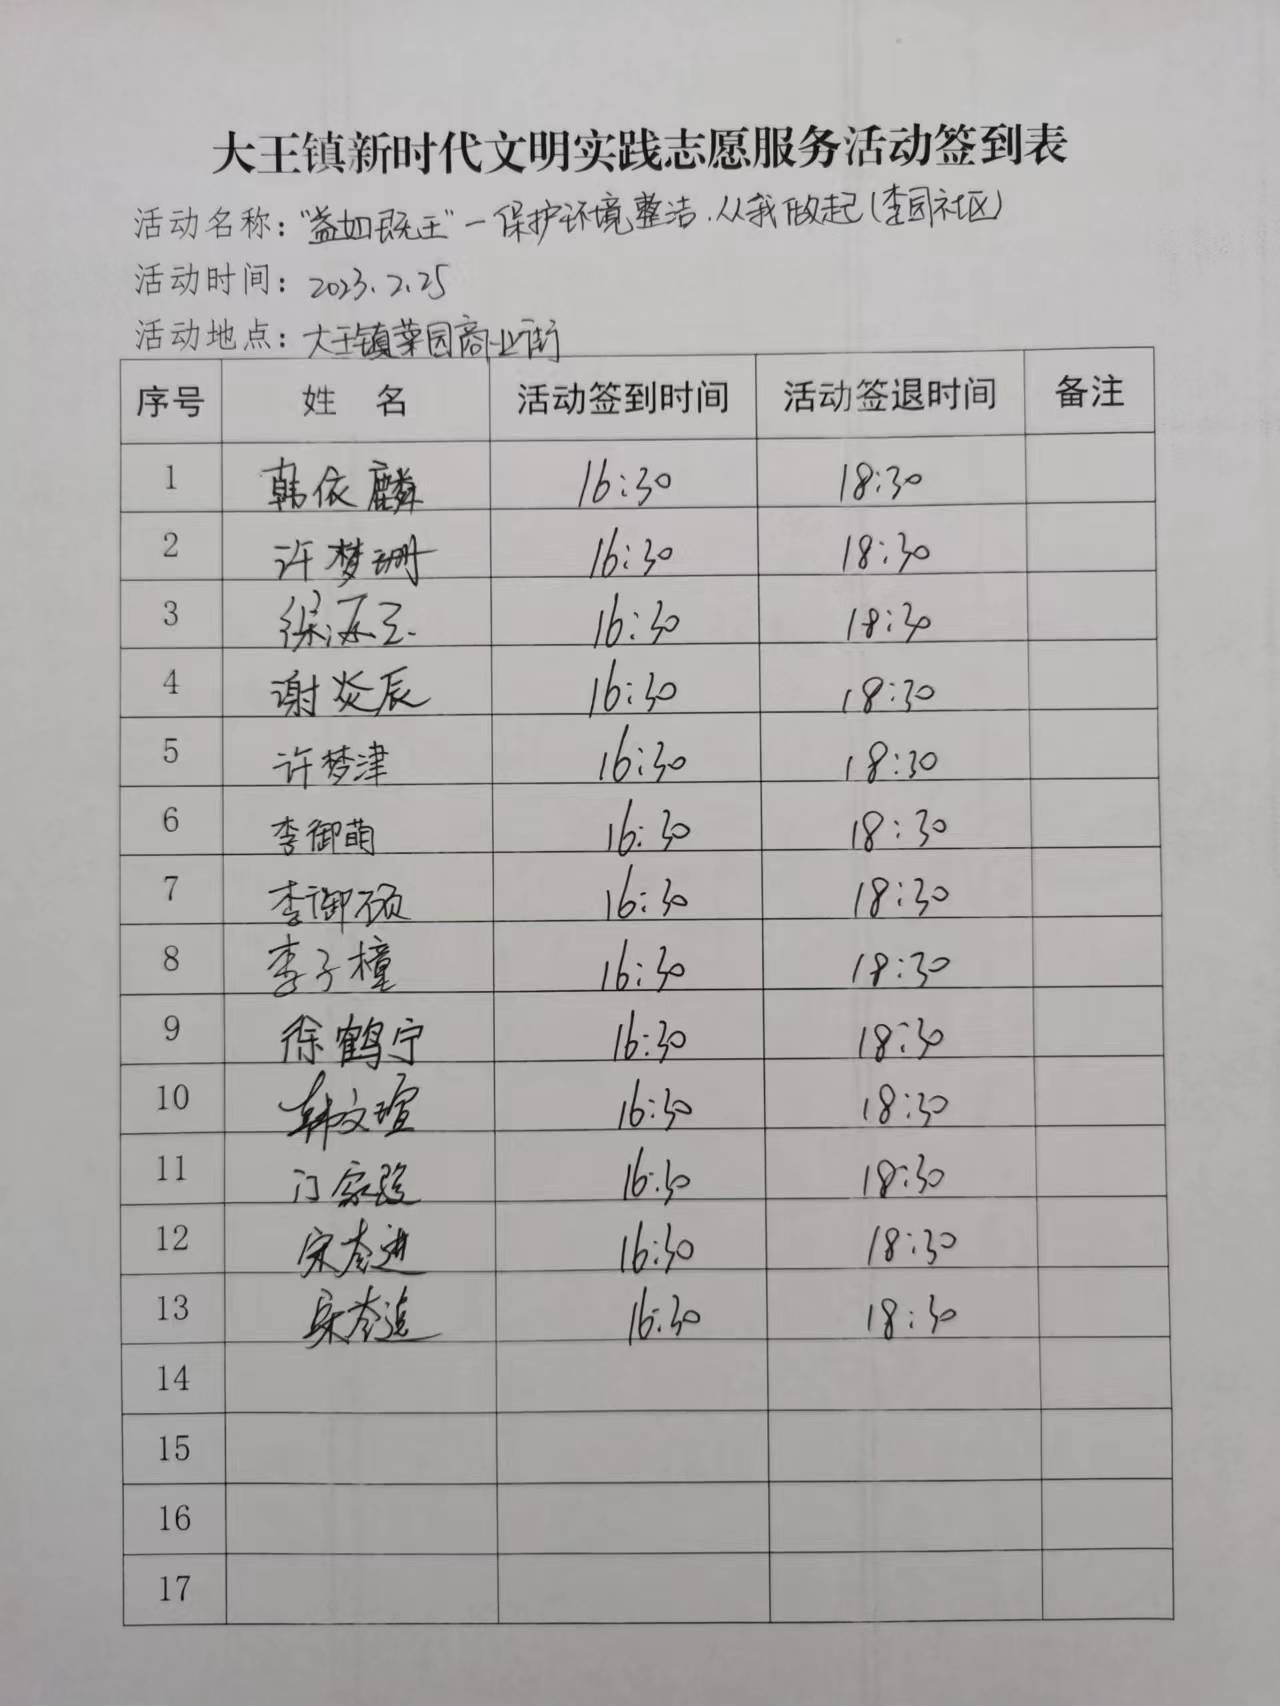 大王镇新时代文明实践志愿服务活动签到表
活动名称："益如既王"一保护环境整洁.从我做起(李园社区)
活动时间：2023.2.25
活动地点：大王镇菜园商业街
序号 姓 名 活动签到时间 活动签退时间 备注
1 韩依麟 16:30 18:30
2 许梦珊 16:30 18:30
3 徐 16:30 18:30
4 谢炎辰 16:30 18:30
5 许梦津 16:30 18:30
6 李御萌 16:30 18:30
7 李御硕 16:30 18:30
8 李子橦 16:30 18:30
9 徐鹤宁 16:30 18:30
10 韩文瑄 16:30 18:30
11 门家 16:30 18:30
12 宋岑进 16:30 18:30
13 宋岑 16:30 18:30
14
15
16
17